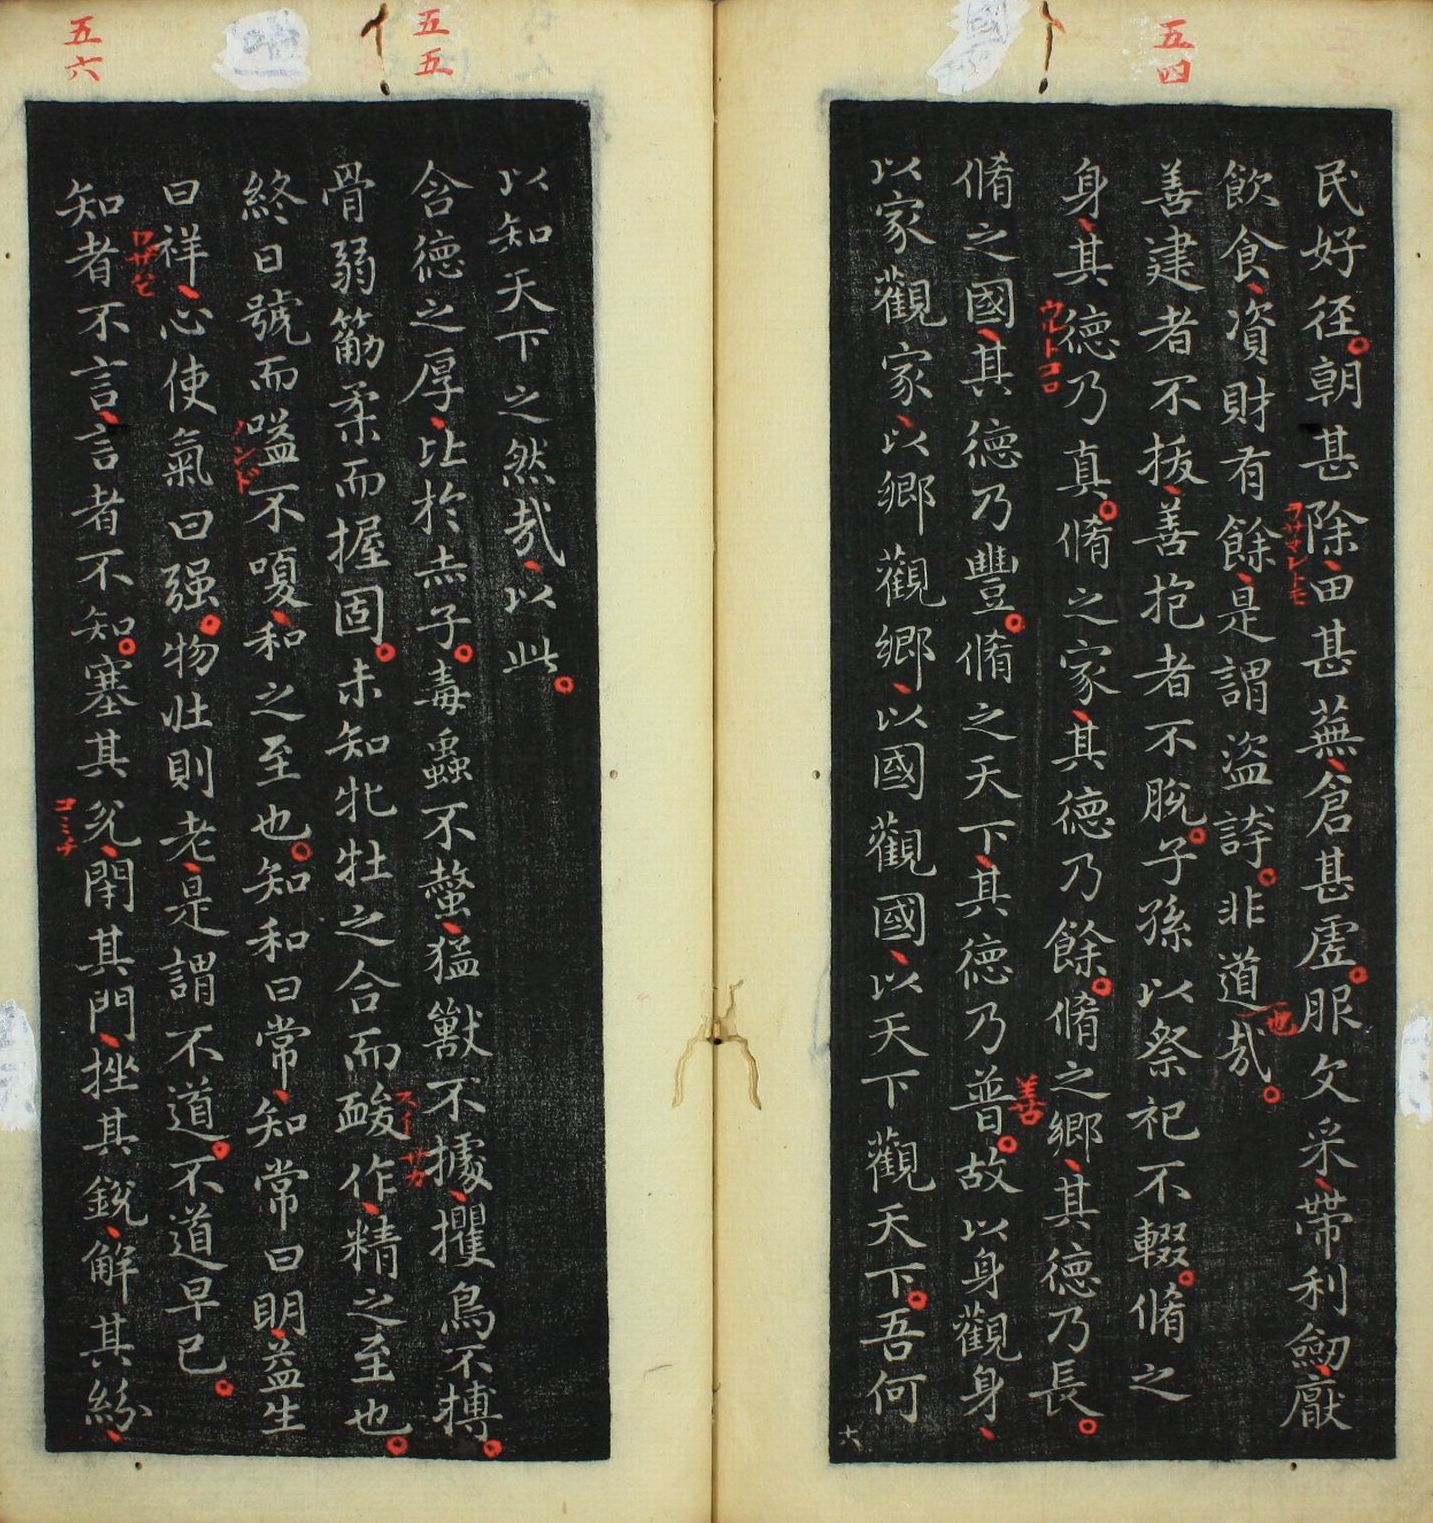 五四
民好径。朝甚除、田甚蕪、倉甚虚。服文采、帶利劒、厭
ヲサマレトモ
飲食、資財有餘、是謂盜誇。非道哉。
也
善建者不拔、善抱者不脫。子孫以祭祀不輟。脩之
身、其德乃真。脩之家、其德乃餘。脩之鄉、其德乃長。
脩之國、其德乃豐。脩之天下、其德乃普。故以身觀身、
善
以家觀家、以鄉觀鄉、以國觀國、以天下觀天下。吾何
六
五五
以知天下之然哉、以此。
含德之厚、比於赤子。毒蟲不螫、猛獸不據、攫鳥不搏。
骨弱筋柔而握固。未知牝牡之合而酸作、精之至也。
スイ
サカ
終日號而嗌不嗄、和之至也。知和曰常、知常曰明、益生
ノンド
曰祥、心使氣曰强。物壯則老、是謂不道。不道早已。
五六
知者不言、言者不知。塞其兊、閉其門、挫其銳、解其紛、
コミチ